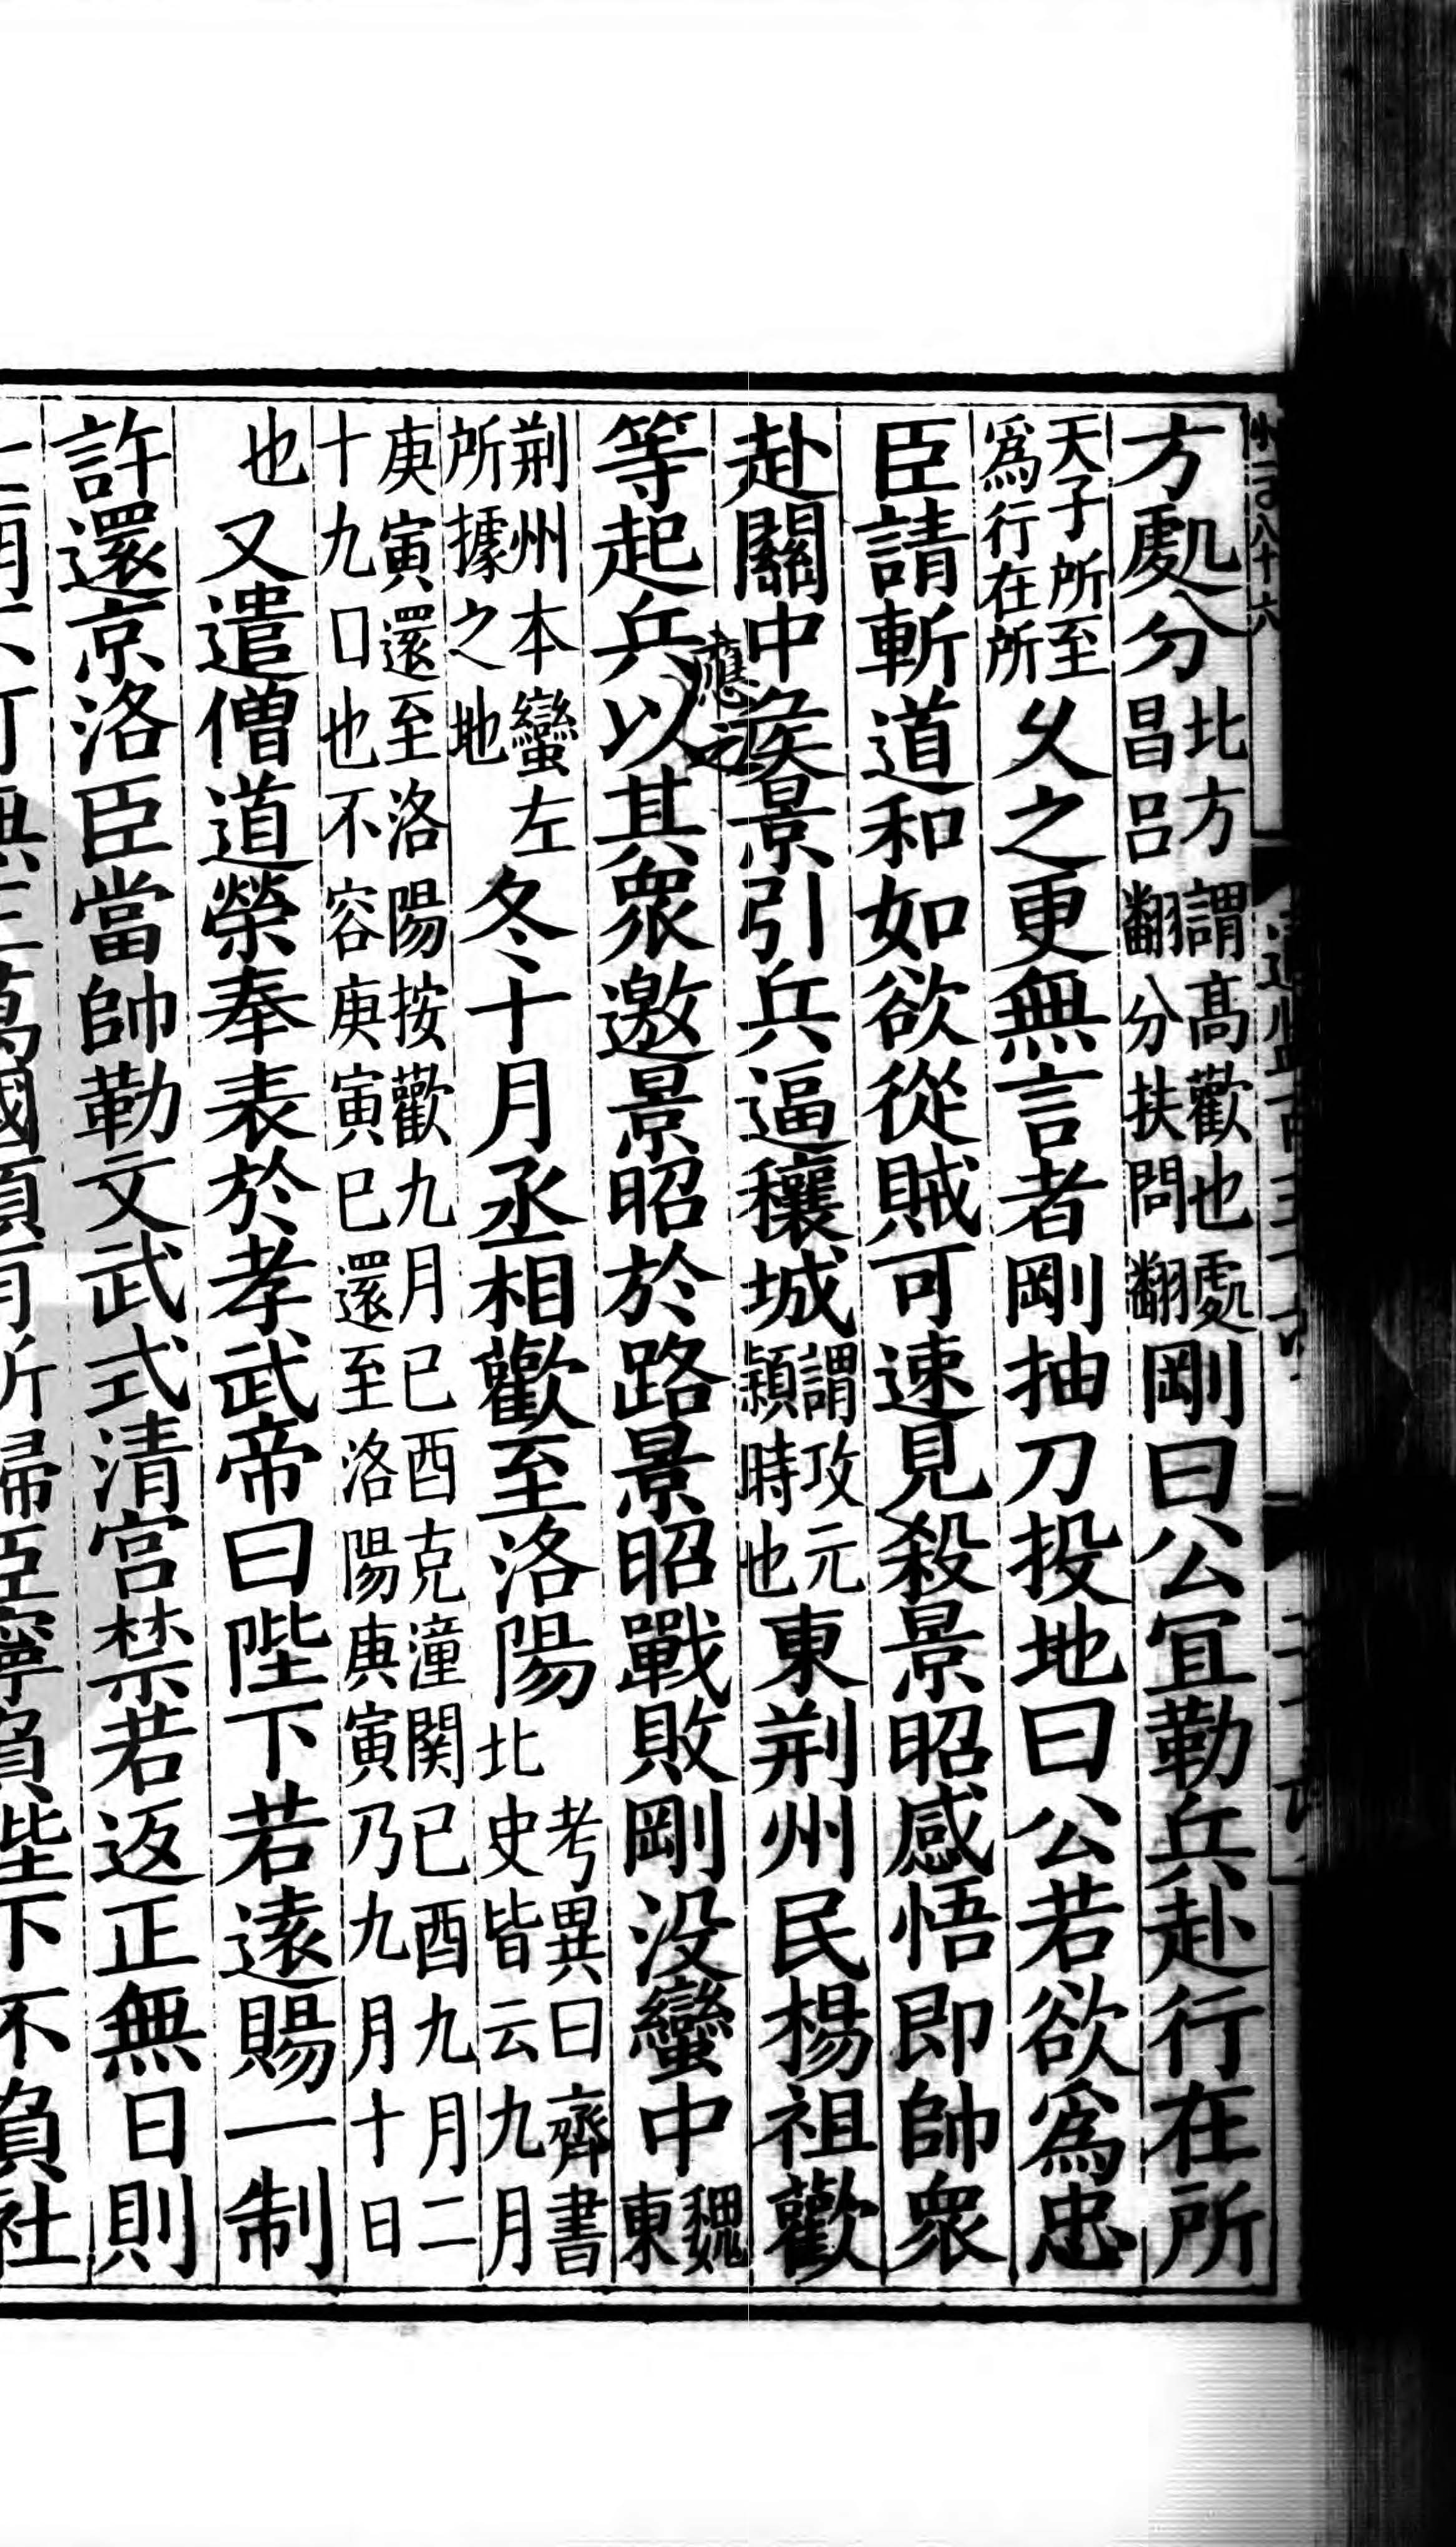 方處分北方謂高歡也處昌呂翻分扶問翻剛曰公宜勒兵赴行在所
天子所至爲行在所乆之更無言者剛抽刀投地曰公若欲爲忠
臣請斬道和如欲從賊可速見殺景昭感悟即帥衆
赴關中矦景引兵逼穰城謂攻元頴時也東荆州民楊祖歡
等起兵以其衆邀景昭於路景昭戰敗剛没蠻中魏東
應之
荆州本蠻左所據之地冬十月丞相歡至洛陽考異曰齊書北史皆云九月
庚寅還至洛陽按歡九月已酉克潼関已酉九月二十九口也不容庚寅已還至洛陽庚寅乃九月十日
也又遣僧道榮奉表於孝武帝曰陛下若遠賜一制
許還京洛臣當帥勒文武式清宫禁若返正無日則
不可無主萬國須有所歸臣寧負陛下不負社